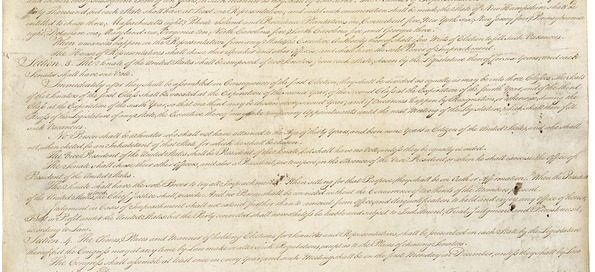 each State shall have at Least one Representative; and until such enumeration shall be made, the State of New Hampshire shall be
entitled to chuse three, Massachusetts eight, Rhode Island and Providence Plantations one, Connecticut five, New York six, New Jersey four, Pennsylvania
eight, Delaware one, Maryland six, Virginia ten, North Carolina five, South Carolina five, and Georgia three.
When vacancies happen in the Representation from any State, the Executive Authority thereof shall issue Writs of Election to fill such Vacancies.
The House of Representatives shall chuse their Speaker and other Officers; and shall have the sole Power of Impeachment.
Section. 3. The Senate of the United States shall be composed of two Senators from each State, chosen by the Legislature thereof, for six Years; and each
Senator shall have one Vote.
Immediately after they shall be assembled in Consequence of the first Election, they shall be divided as equally as may be into three Classes. The Seats
of the Senators of the first Class shall be vacated at the Expiration of the second Year, of the second Class at the Expiration of the fourth Year, and of the third
Class at the Expiration of the sixth Year, so that one third may be chosen every second Year; and if Vacancies happen by Resignation, or otherwise, during the
Recess of the Legislature of any State, the Executive thereof may make temporary Appointments until the next Meeting of the Legislature, which shall then fill
such Vacancies.
No Person shall be a Senator who shall not have attained to the Age of thirty Years, and been nine Years a Citizen of the United States, and who shall
not, when elected, be an Inhabitant of that State for which he shall be chosen.
The Vice President of the United States shall be President of the Senate, but shall have no Vote, unless they be equally divided.
The Senate shall chuse their other Officers, and also a President pro tempore, in the Absence of the Vice President, or when he shall exercise the Office of
President of the United States.
The Senate shall have the sole Power to try all Impeachments. When sitting for that Purpose, they shall be on Oath or Affirmation. When the President
of the United States is tried, the Chief Justice shall preside: And no Person shall be convicted without the Concurrence of two thirds of the Members present.
Judgment in Cases of Impeachment shall not extend further than to removal from Office, and disqualification to hold and enjoy any Office of honor,
Trust or Profit under the United States: but the Party convicted shall nevertheless be liable and subject to Indictment, Trial, Judgment and Punishment,
according to Law.
Section. 4. The Times, Places and Manner of holding Elections for Senators and Representatives, shall be prescribed in each State by the Legislature
thereof; but the Congress may at any time by Law make or alter such Regulations, except as to the Places of chusing Senators.
The Congress shall assemble at least once in every Year, and such Meeting shall be on the first Monday in December, unless they shall by Law